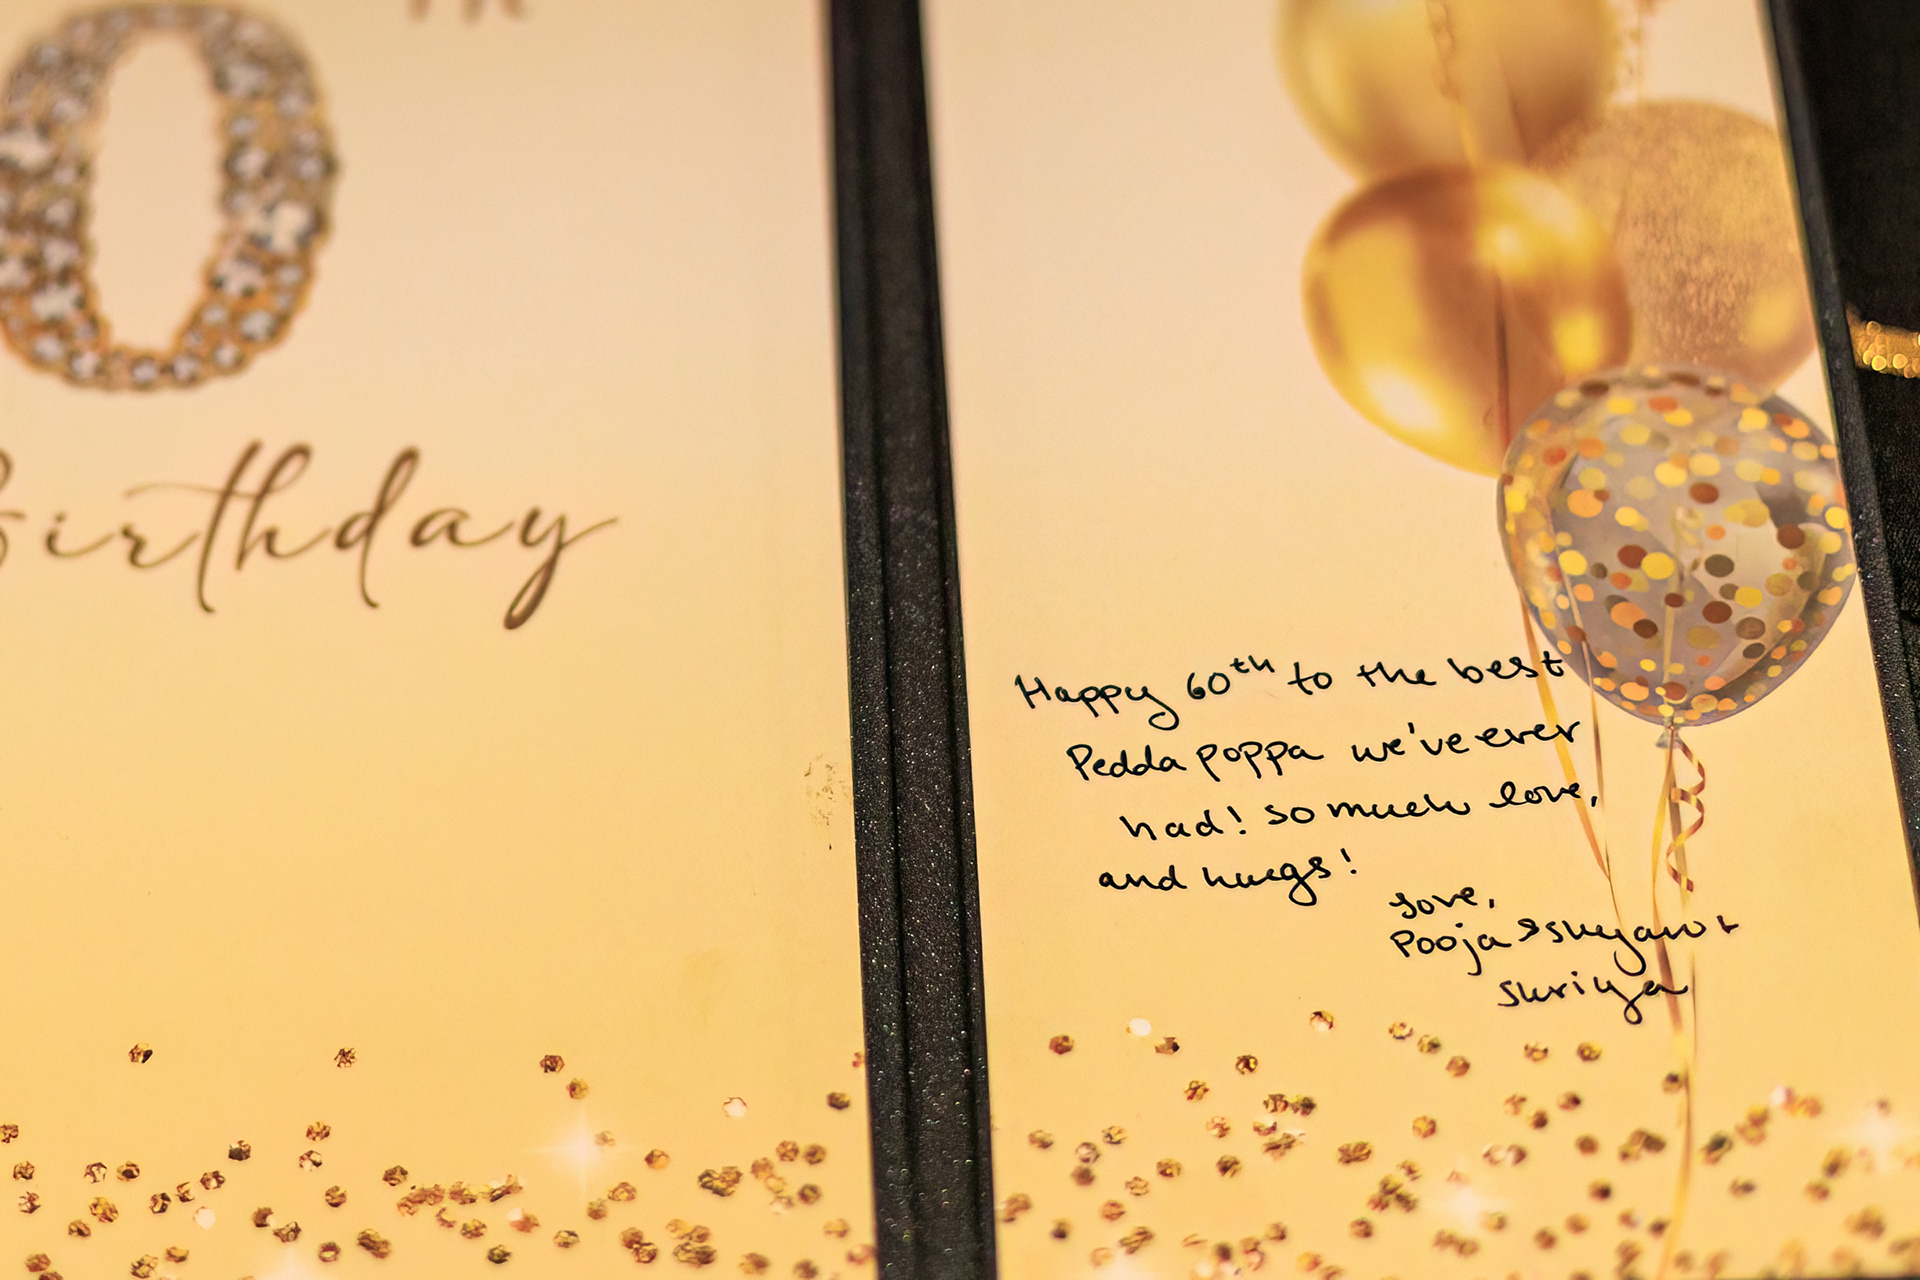 0
Birthday
Happy 60th to the best
Pedda poppa we've ever
had! So much love,
and hugs!
Love,
Pooja & Shyam &
Shriya